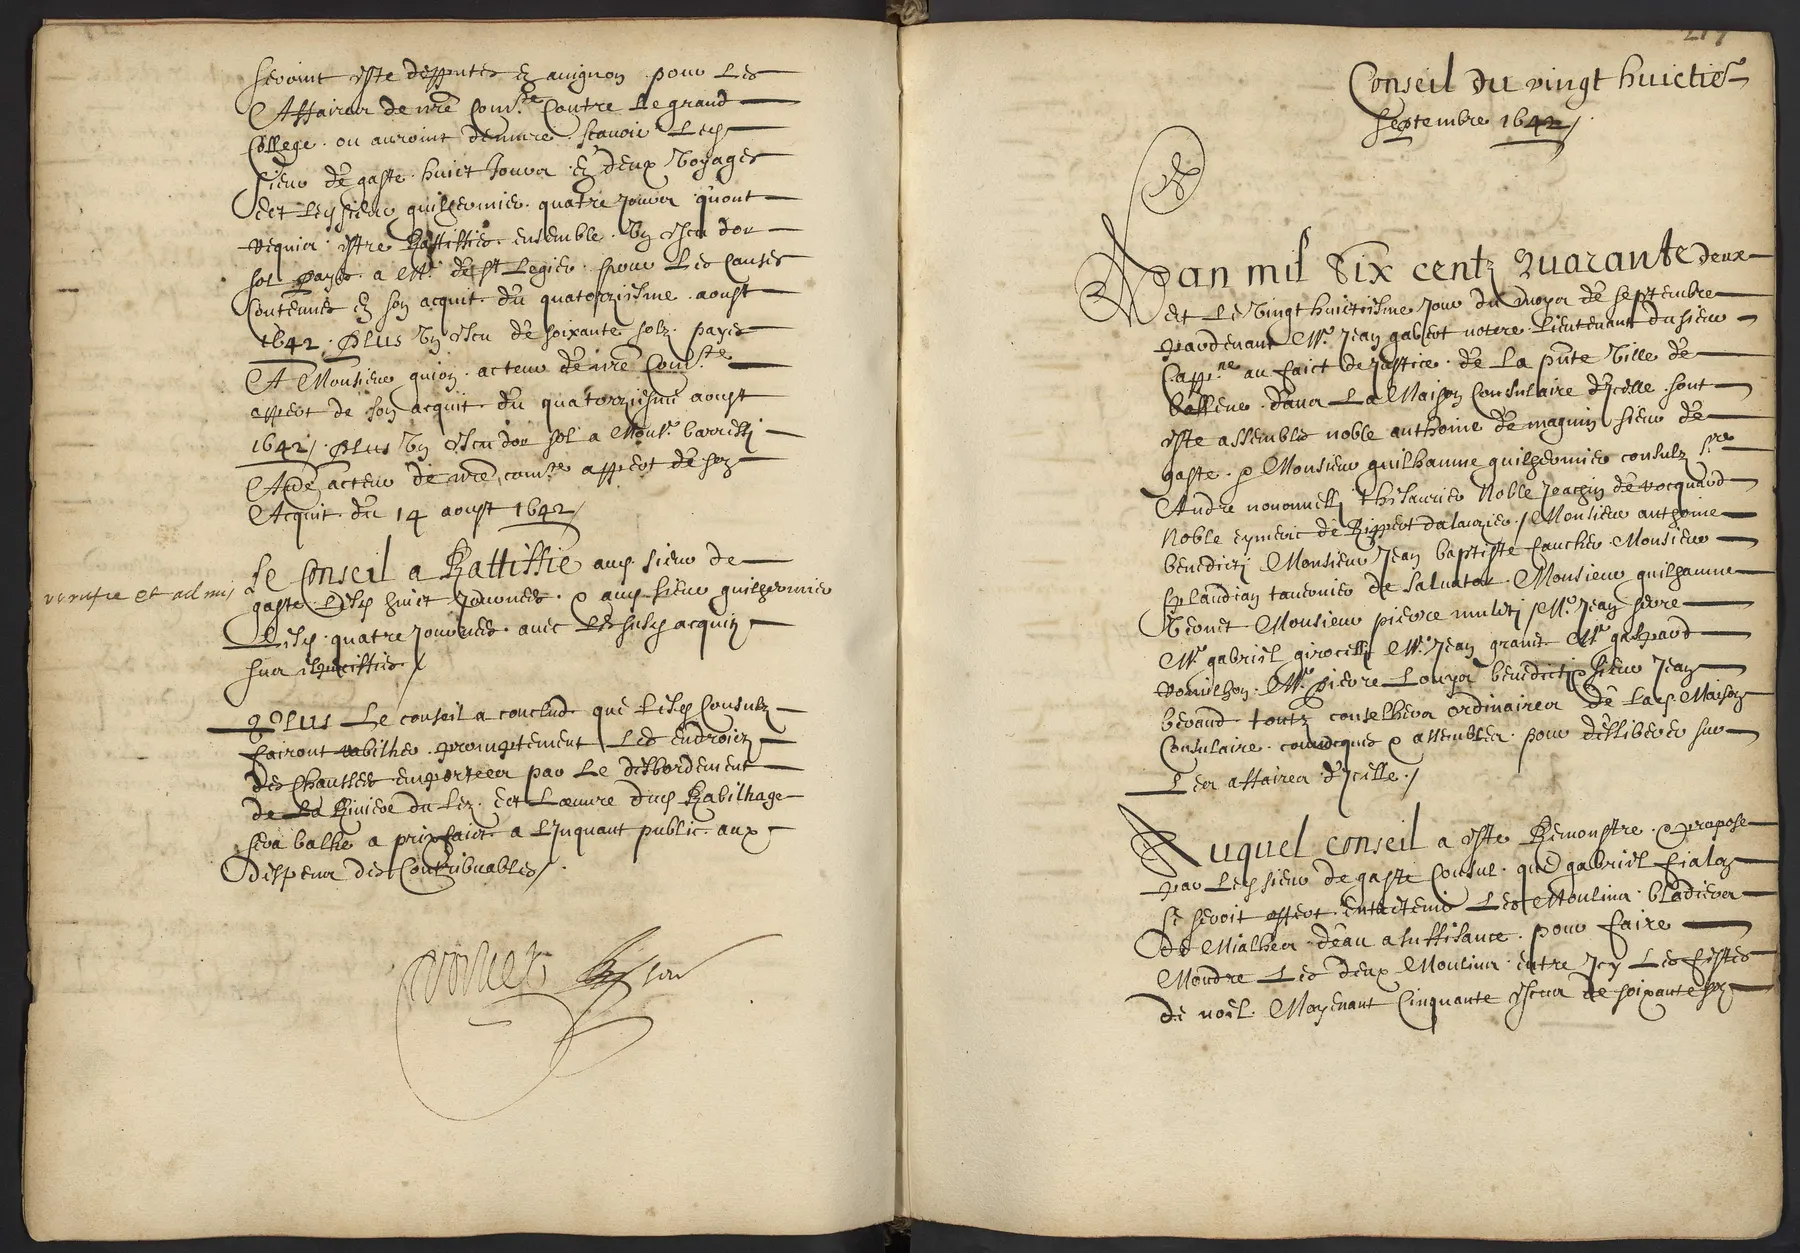 seroint este desputes en avignon pour les
Affaires de nre Com.te Contre le grand
College ou auroint demure scavoir lesd
sieur de gaste huict Jours en deux Voyages
et led sieur guilhermier quatre Jours quont
requier estre Rattiffies ensemble Un escu dor
sol payé a Mr. de St Legier pour les Causes
Contenues en son acquit du quatorziesme aoust
1642. Plus Un escu de soixante solz payes
A Monsieur guion acteur de nre Com.te
appert de son acquit du quatorziesme aoust
1642 / Plus Un escu dor sol a Monsr. barrelli
acteur de nre com.te appert de son
Acquit du 14 aoust 1642 /
Le Conseil a Rattiffié aud sieur de
verifie et admis
gaste lesd huict Journees & aud sieur guilhermier
lesd quatre Journees avec lesusd acquitz
sus
Plus Le conseil a conclud que lesd Consulz
fairont rabilher promptement les endroictz
des Chaussees emportees par le desbordement
de La Riviere du Lez et Lœuvre dud Rabilhage
sera balhé a prixfaict a Linquant public aux
despens des Contribuables /.
Conseil du vingt huicties
Septembre 1642 /.
Lan mil Six centz Quarante deux
et le Vingt huictiesme Jour du moys de septembre
pardevant Mr. Jean gabert notere Lieutenant du sieur
Capp.ne au faict de Justice de La pnte Ville de
dans La Maison Consulaire dicelle sont
este assembles noble anthoine de magnin sieur de
gaste & Monsieur guilhaume guilhermier consulz sre
Andre novonnelli thesaurier Noble Joachin de rocquard
Noble eymeric de Rippert dalauzier / Monsieur anthoine
benedicti Monsieur Jean baptiste faucher Monsieur
splandian tavernier de salvator Monsieur guilhaume
Monsieur pierre muleti / Mr. Jean serre
Mr. gabriel girocelli Mr. Jean granet Mr. gaspard
romilhon Mr. Pierre Louys benedicti & sieur Jean
beraud toutz conselhers ordinaires de lad Maison
Consulaire convoqués & assembles pour desliberer sur
Les affaires dicelle /
Auquel conseil a este Remonstre & propose
par led sieur de gaste Consul que gabriel fialon
se seroit offert entretenir Les Moulins bladiers
de Mialhes deau a suffisance pour faire
Moudre Les deux Moulins entre Jcy Les festes
de noel Moyenant Cinquante escus de soixante solz